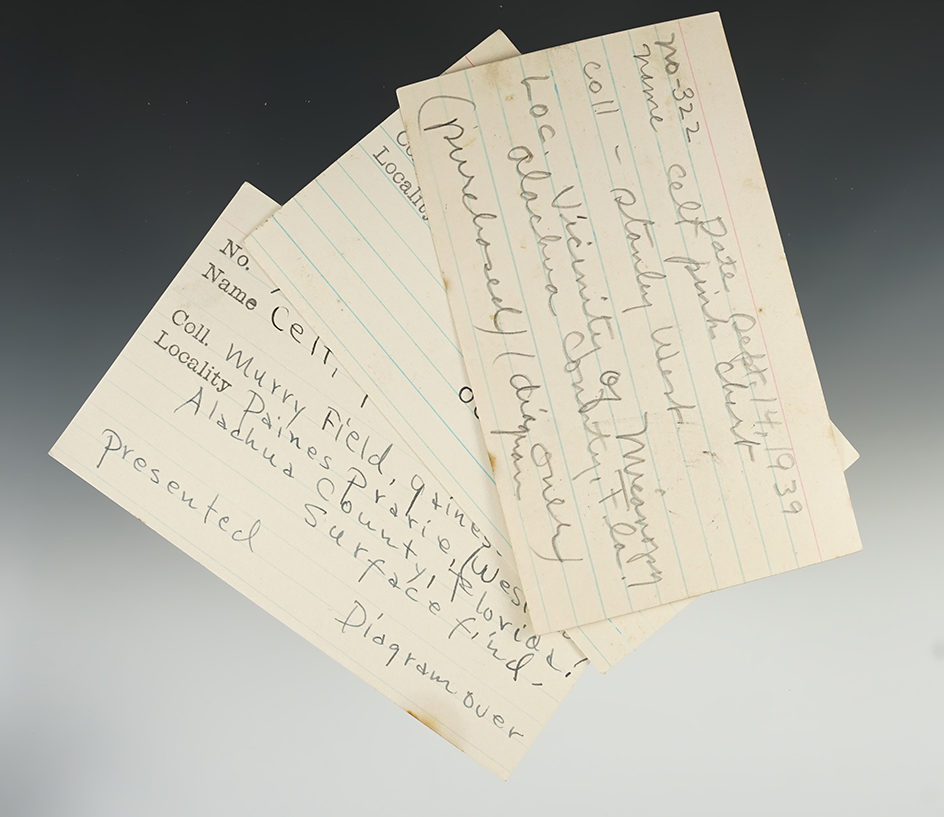 no-322
Date Sept. 14, 1939
name celt pink chert
coll - Stanly West
Loc. Vicinity of Micanopy
Alachua County, Fla!
(purchased) (diagram over)
Locality
No.
Name Celt,
Coll. Murry Field, gaines-
Locality Paines Prarie, (Wes
Alachua County, Florida!
Surface find-
presented
Diagram over